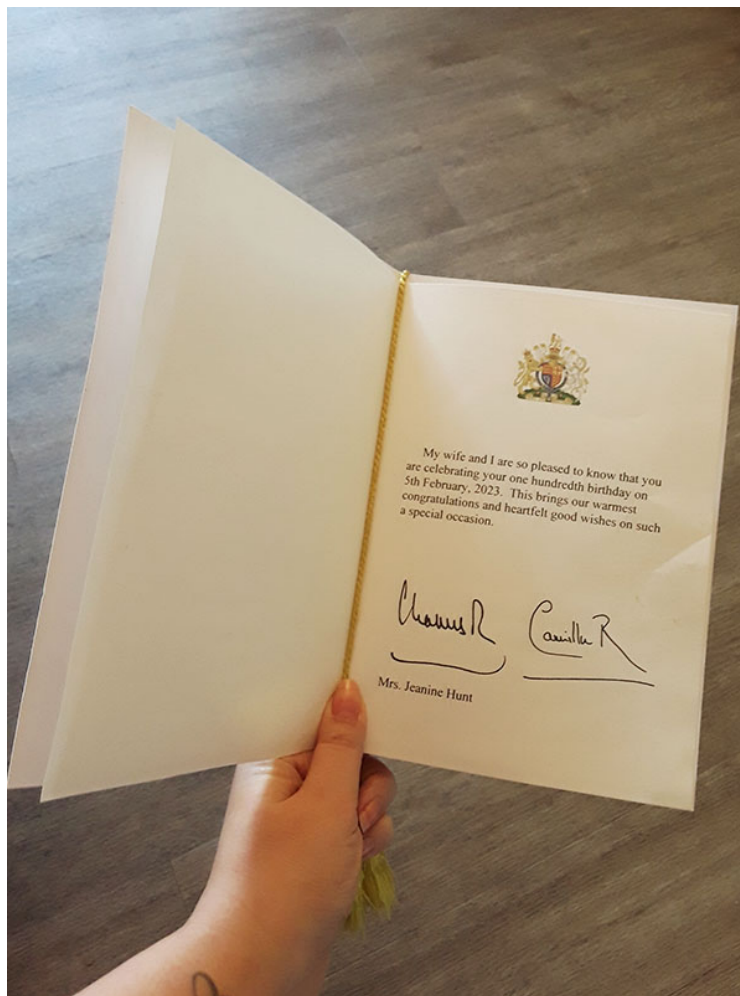 My wife and I are so pleased to know that you
are celebrating your one hundredth birthday on
5th February, 2023. This brings our warmest
congratulations and heartfelt good wishes on such
a special occasion.
Charles R Camilla R
Mrs. Jeanine Hunt